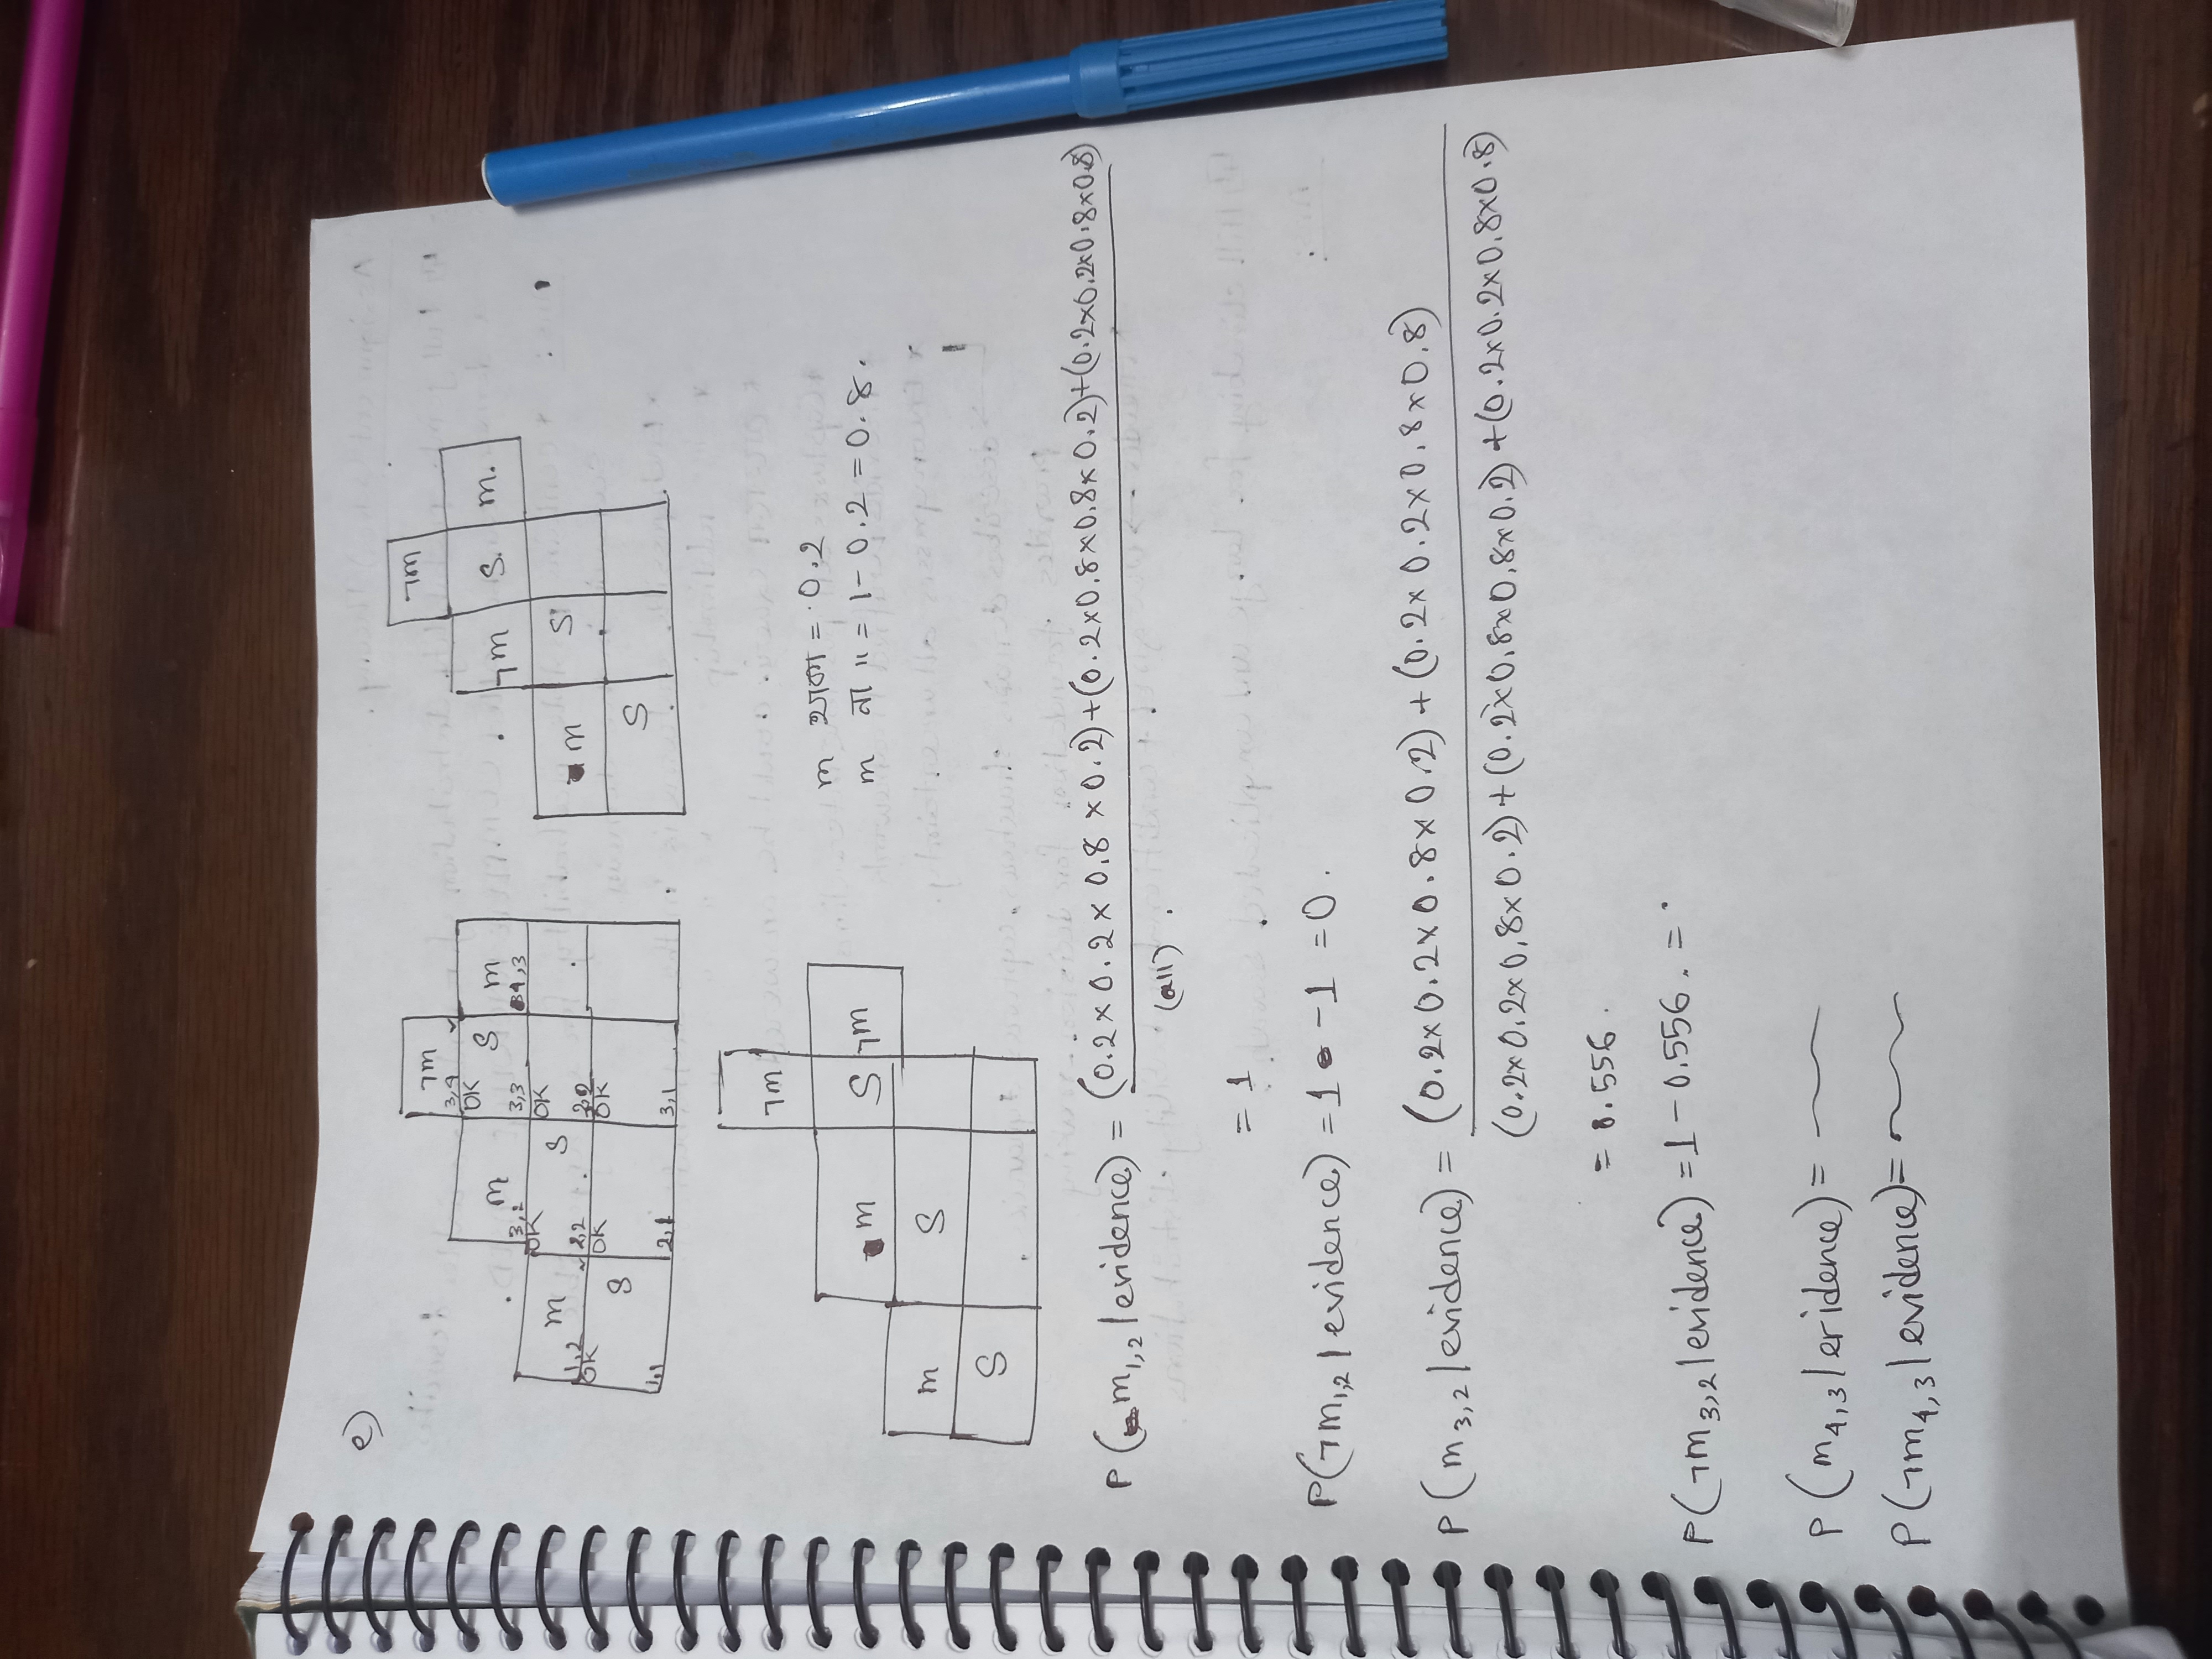 e)
¬m
3,4
OK
m
S
m
3,2
3,3
4,3
OK
OK
m
S
1,2
2,2
OK
OK
OK
S
1,1
2,1
3,1
¬m
¬m
S
m.
m
S
S
¬m
m
S
¬m
m
S
S
m থাকা = 0.2
m না " = 1 - 0.2 = 0.8.
P(m1,2 | evidence) = (0.2 x 0.2 x 0.8 x 0.2)+(0.2x0.8x0.8x0.2)+(0.2x0.2x0.8x0.8)
(all).
= 1
P(¬m1,2 | evidence) = 1 - 1 = 0.
P(m3,2 | evidence) = (0.2x0.2x0.8x0.2) + (0.2x0.2x0.8x0.8)
(0.2x0.2x0.8x0.2)+(0.2x0.8x0.8x0.2)+(0.2x0.2x0.8x0.8)
= 0.556.
P(¬m3,2 | evidence) = 1 - 0.556. =
P(m4,3 | evidence) =
P(¬m4,3 | evidence) =